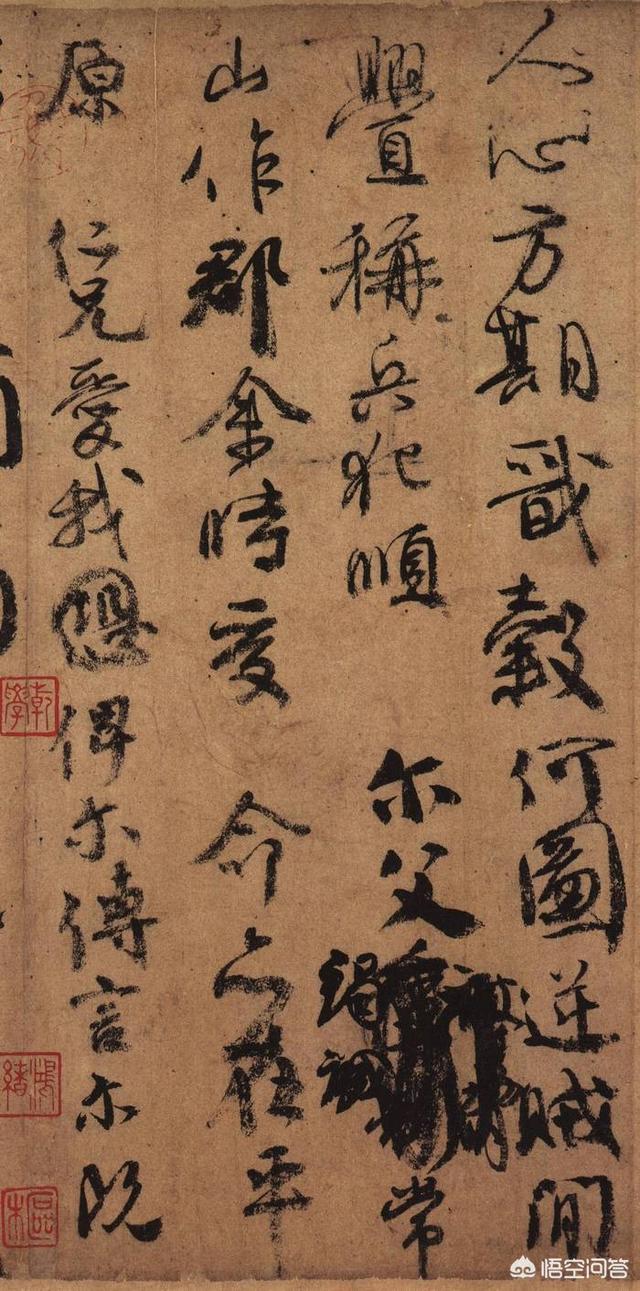 人心方期戬穀何圖逆賊間
舋稱兵犯順 尓父竭誠常
山作郡余時受 命亦在平
原 仁兄愛我恐俾尓傳言尓既
乾學
鴻緒
悟空问答